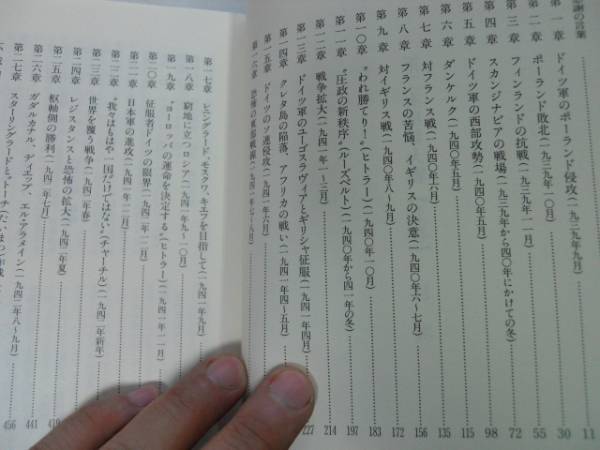 謝の言葉
第一章 ドイツ軍のポーランド侵攻(一九三九年九月) 11
第二章 ポーランド敗北(一九三九年一〇月) 30
第三章 フィンランドの抗戦(一九三九年一一月) 55
第四章 スカンジナビアの戦場(一九三九年から四〇年にかけての冬) 72
第五章 ドイツ軍の西部攻勢(一九四〇年五月) 98
第六章 ダンケルク(一九四〇年五月) 115
第七章 対フランス戦(一九四〇年六月) 135
第八章 フランスの苦悩、イギリスの決意(一九四〇年六〜七月) 156
第九章 対イギリス戦(一九四〇年八〜九月) 172
第一〇章 "われ勝てり!"(ヒトラー)(一九四〇年一〇月) 183
第一一章 "圧政の新秩序"(ルーズベルト)(一九四〇年から四一年の冬) 197
第一二章 戦争拡大(一九四一年一〜三月) 214
第一三章 ドイツ軍のユーゴスラヴィアとギリシャ征服(一九四一年四月) 227
第一四章 クレタ島の陥落、アフリカの戦い(一九四一年四〜五月)
第一五章 ドイツのソ連侵攻(一九四一年六月)
第一六章 恐怖の東部戦線(一九四一年七〜八月)
第一七章 レニングラード、モスクワ、キエフを目指して(一九四一年九月)
第一八章 窮地に立つロシア(一九四一年九〜一〇月)
第一九章 "ヨーロッパの運命を決定する"(ヒトラー)(一九四一年一一月)
第二〇章 征服者ドイツの限界(一九四一年一二月)
第二一章 日本軍の進攻(一九四一年一二月)
第二二章 "我々はもはや一国だけではない"(チャーチル)(一九四二年新年)
第二三章 世界を覆う戦争(一九四二年春)
第二四章 レジスタンスと恐怖の拡大(一九四二年夏)
第二五章 枢軸側の勝利(一九四二年七月) 419
第二六章 ガダルカナル、ディエップ、エル・アラメイン(一九四二年八〜九月) 441
第二七章 スターリングラードと"トーチ(たいまつ)作戦 456